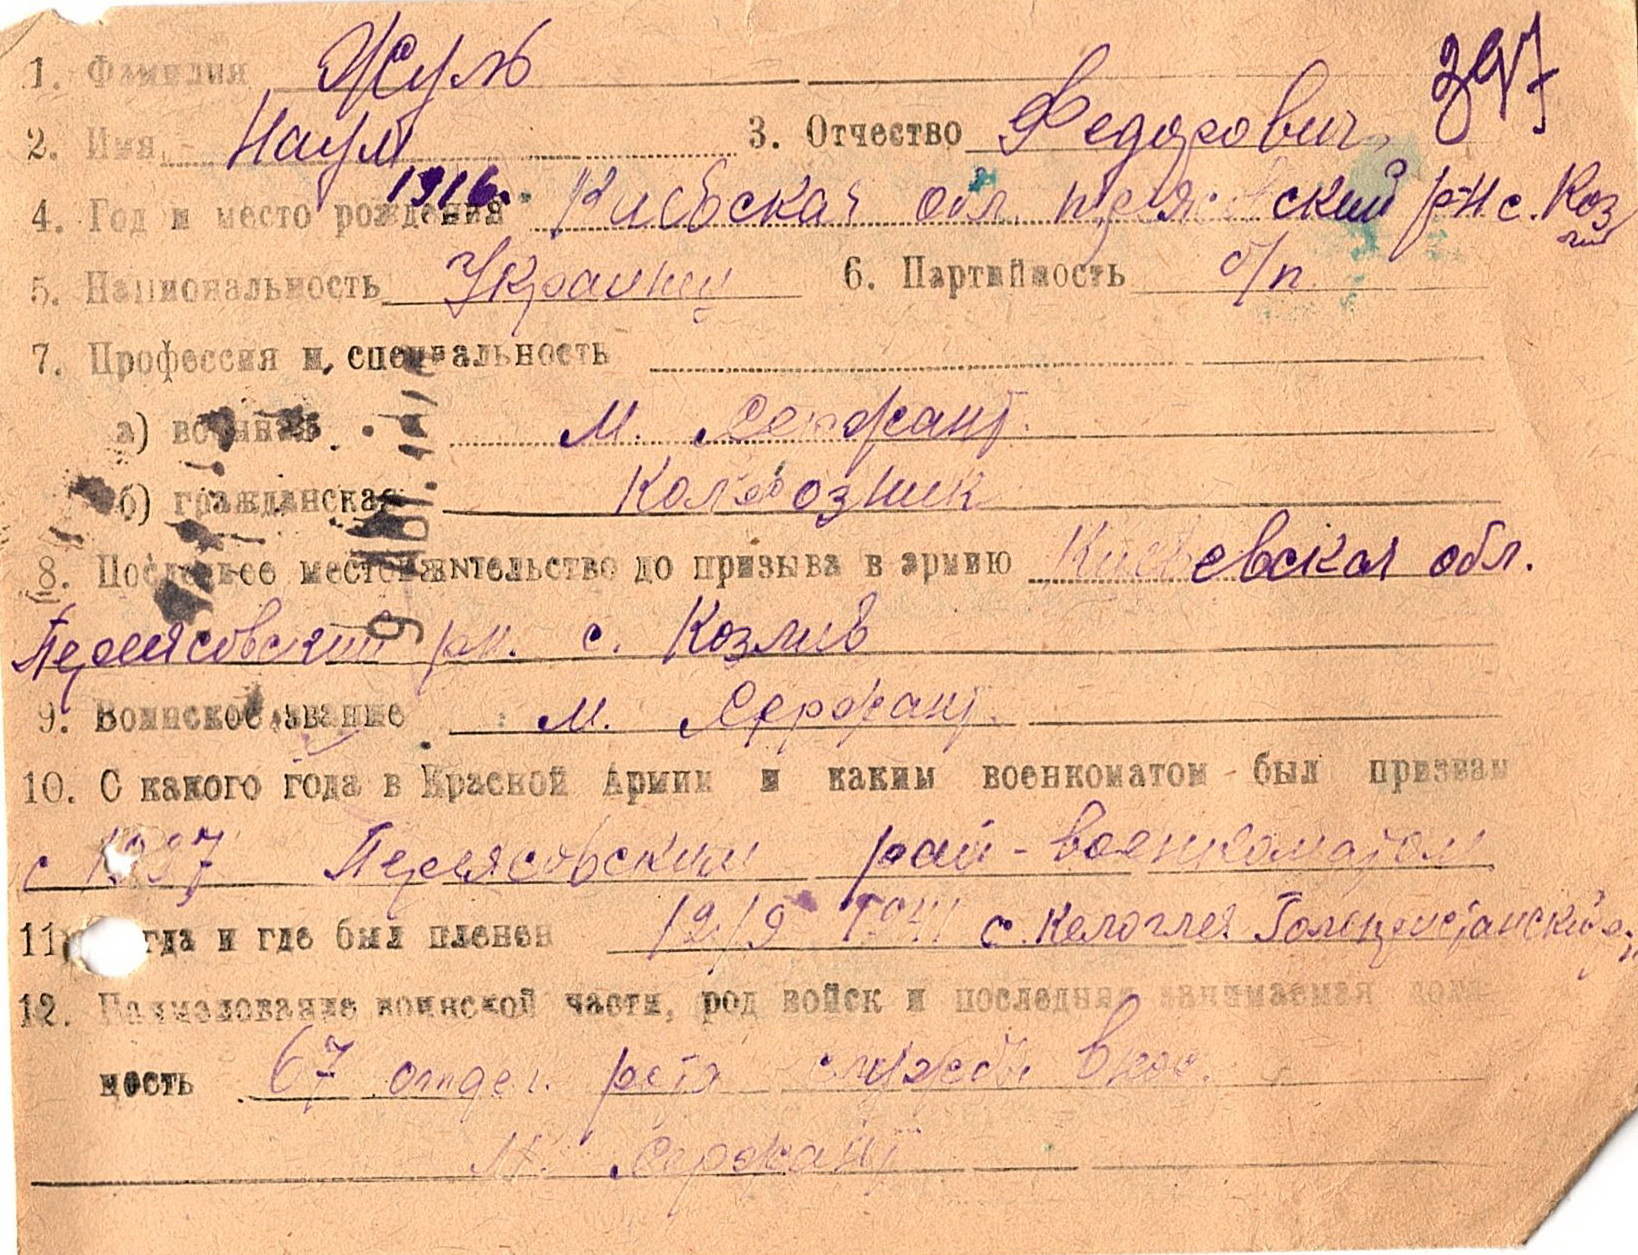 397
1. Фамилия Жуль
2. Имя Наум 3. Отчество Федорович
4. Год и место рождения 1916. Киевская обл. ский р-н с. Коз
5. Национальность Украинец 6. Партийность б/п.
7. Профессия и специальность
а) военная М. Сержант.
б) гражданская Колхозник
8. Последнее местожительство до призыва в армию Киевская обл.
Переясовский рн. с. Козлив
9. Воинское звание М. Сержант.
10. С какого года в Красной Армии и каким военкоматом был призван
с 1937 Переясовским рай-военкоматом
11. гда и где был пленен 12/9 1941 с.
12. Наименование воинской части, род войск и последняя занимаемая долж
ность 67 отдел. рота службы
М. Сержант